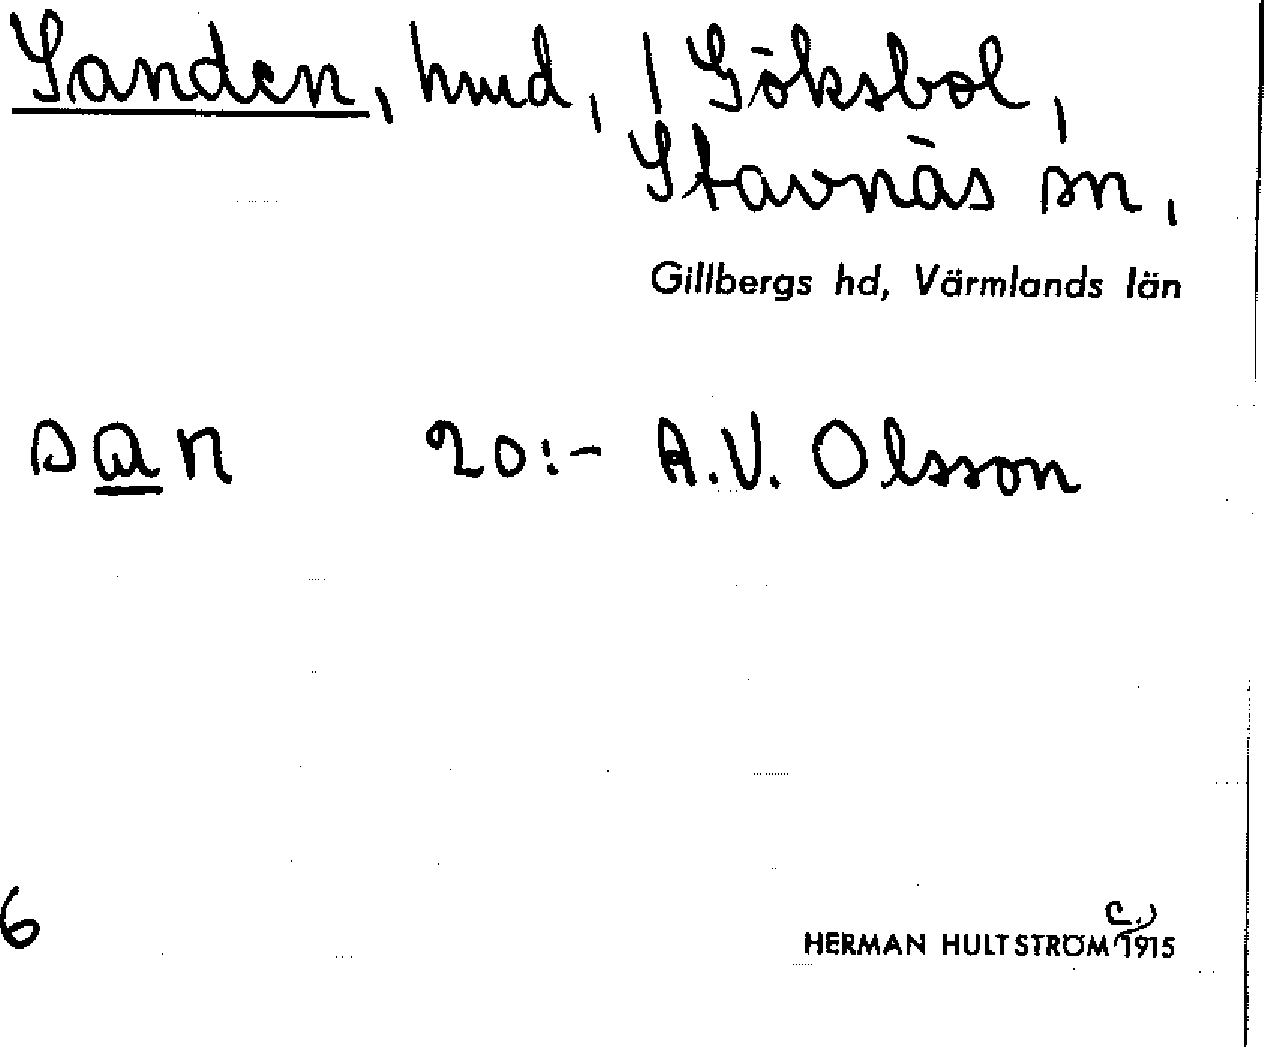 Sanden, hmd, / Göksbol,
Stavnäs sn,
Gillbergs hd, Värmlands län
san 20:- A.V. Olsson
6
HERMAN HULTSTRÖM (c.) 1915